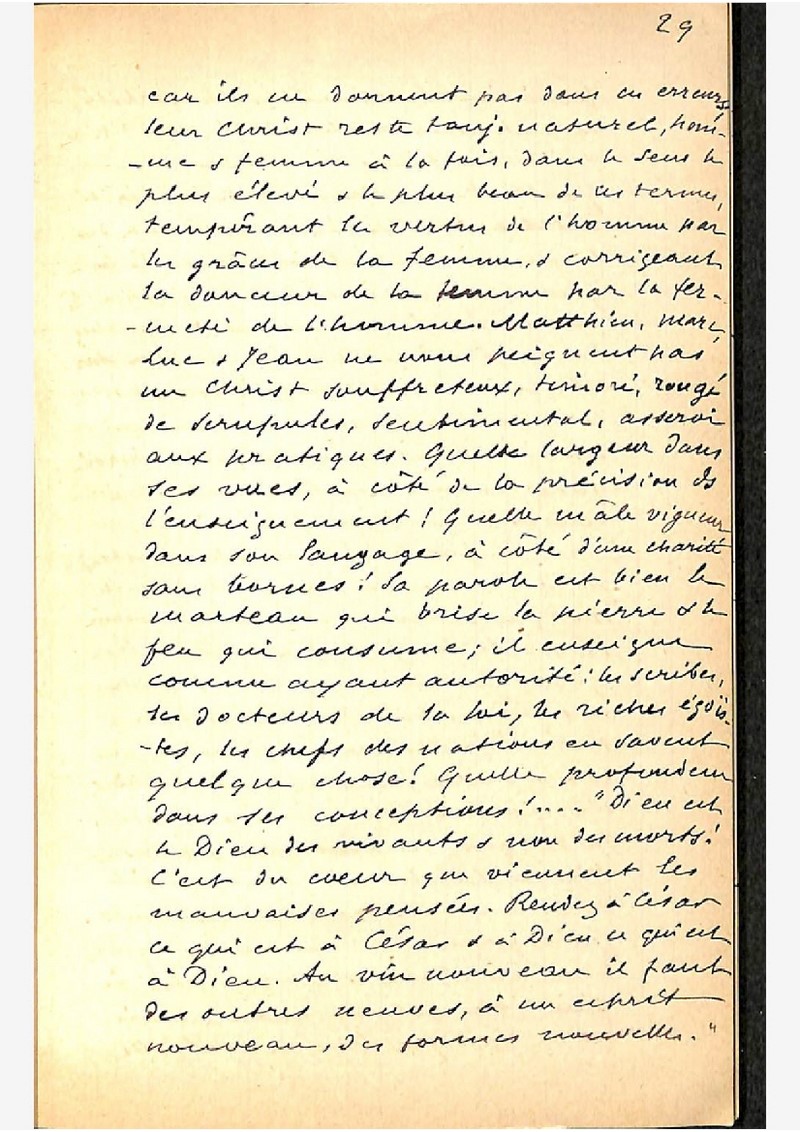 29
car ils ne donnent pas dans ces erreurs,
leur Christ reste touj. naturel, hom-
-me & femme à la fois, dans le sens le
plus élevé & le plus beau de ces termes,
tempérant les vertus de l'homme par
les grâces de la femme, & corrigeant
la douceur de la femme par la fer-
-meté de l'homme. Matthieu, Marc,
Luc & Jean ne nous peignent pas
un Christ souffreteux, timoré, rongé
de scrupules, sentimental, asservi
aux pratiques. Quelle largeur dans
ses vues, à côté de la précision de
l'enseignement! Quelle mâle vigueur
dans son langage, à côté d'une charité
sans bornes! Sa parole est bien le
marteau qui brise la pierre & le
feu qui consume; il enseigne
comme ayant autorité: les scribes,
les docteurs de la loi, les riches égoïs-
-tes, les chefs des nations en savent
quelque chose! Quelle profondeur
dans ses conceptions!.... "Dieu est
le Dieu des vivants & non des morts!
C'est du coeur que viennent les
mauvaises pensées. Rendez à César
ce qui est à César & à Dieu ce qui est
à Dieu. Au vin nouveau il faut
des outres neuves, à un esprit
nouveau, des formes nouvelles."